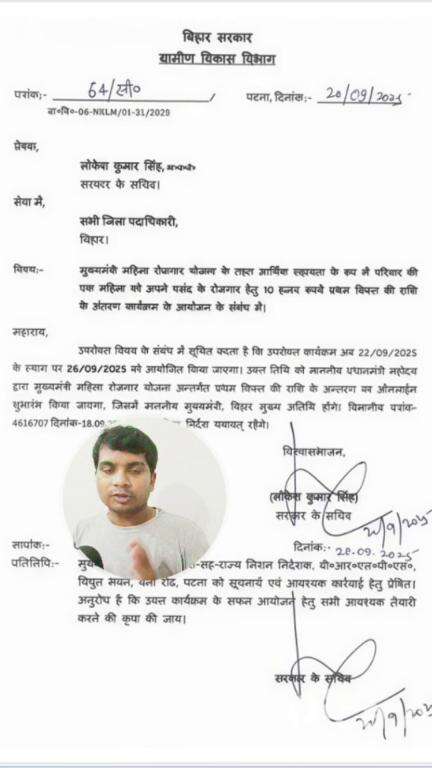 बिहार सरकार
ग्रामीण विकास विभाग
पत्रांक:- 64/सी०
पटना, दिनांक:- 20/09/2025
प्रेषक,
लोकेश कुमार सिंह,
सरकार के सचिव।
सेवा में,
सभी जिला पदाधिकारी,
बिहार।
विषय:- मुख्यमंत्री महिला रोजगार योजना के तहत आर्थिक सहायता के रूप में परिवार की
एक महिला को अपने पसंद के रोजगार हेतु 10 हजार रूपये प्रथम किस्त की राशि
के अंतरण कार्यक्रम के आयोजन के संबंध में।
महाशय,
उपरोक्त विषय के संबंध में सूचित करना है कि उपरोक्त कार्यक्रम अब 22/09/2025
के स्थान पर 26/09/2025 को आयोजित किया जाएगा। उक्त तिथि को माननीय प्रधानमंत्री महोदय
द्वारा मुख्यमंत्री महिला रोजगार योजना अन्तर्गत प्रथम किस्त की राशि के अन्तरण का ऑनलाईन
शुभारंभ किया जायगा, जिसमें माननीय मुख्यमंत्री, बिहार मुख्य अतिथि होंगे। विभागीय पत्रांक-
4616707 दिनांक-18.09. निर्देश यथावत् रहेंगे।
विश्वासभाजन,
(लोकेश कुमार सिंह)
सरकार के सचिव
20/9/2025
ज्ञापांक:-
दिनांक:- 20.09.2025
प्रतिलिपि:- -सह-राज्य मिशन निदेशक, बी०आर०एल०पी०एस०,
विद्युत भवन, रोड, पटना को सूचनार्थ एवं आवश्यक कार्रवाई हेतु प्रेषित।
अनुरोध है कि उक्त कार्यक्रम के सफल आयोजन हेतु सभी आवश्यक तैयारी
करने की कृपा की जाय।
सरकार के सचिव
20/9/2025